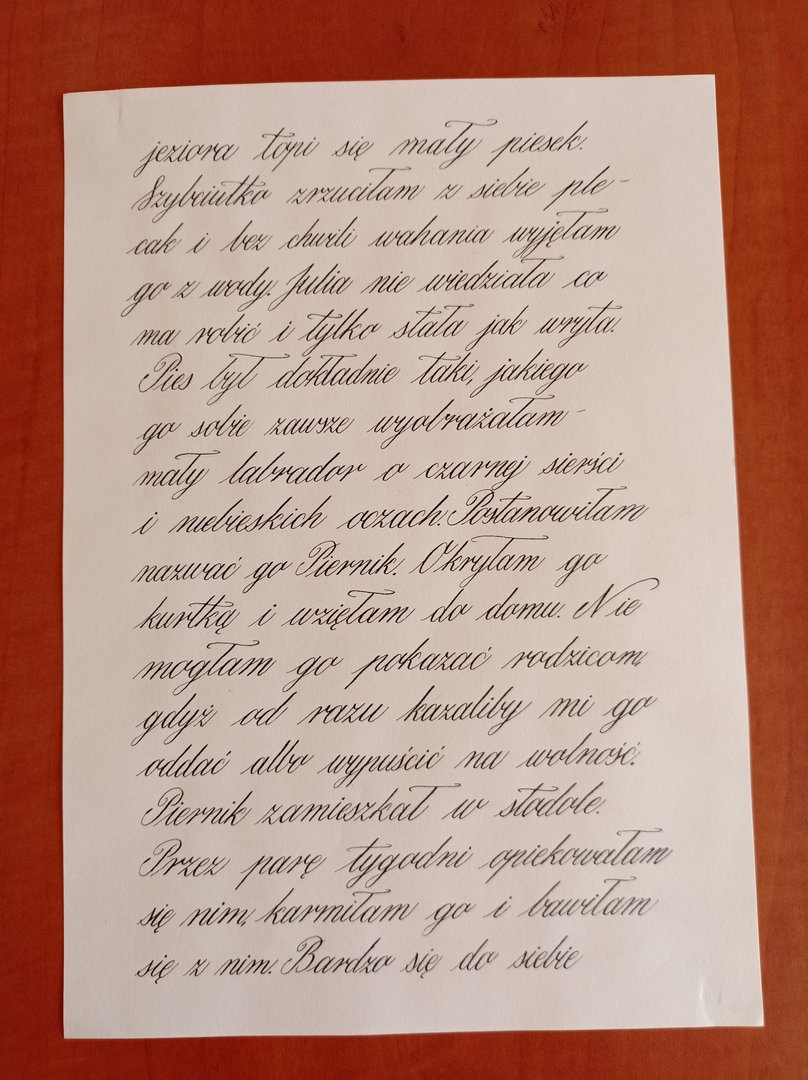 jeziora topi się mały piesek.
Szybciutko zrzuciłam z siebie ple-
cak i bez chwili wahania wyjęłam
go z wody. Julia nie wiedziała co
ma robić i tylko stała jak wryta.
Pies był dokładnie taki, jakiego
go sobie zawsze wyobrażałam -
mały labrador o czarnej sierści
i niebieskich oczach. Postanowiłam
nazwać go Piernik. Okryłam go
kurtką i wzięłam do domu. Nie
mogłam go pokazać rodzicom,
gdyż od razu kazaliby mi go
oddać albo wypuścić na wolność.
Piernik zamieszkał w stodole.
Przez parę tygodni opiekowałam
się nim, karmiłam go i bawiłam
się z nim. Bardzo się do siebie